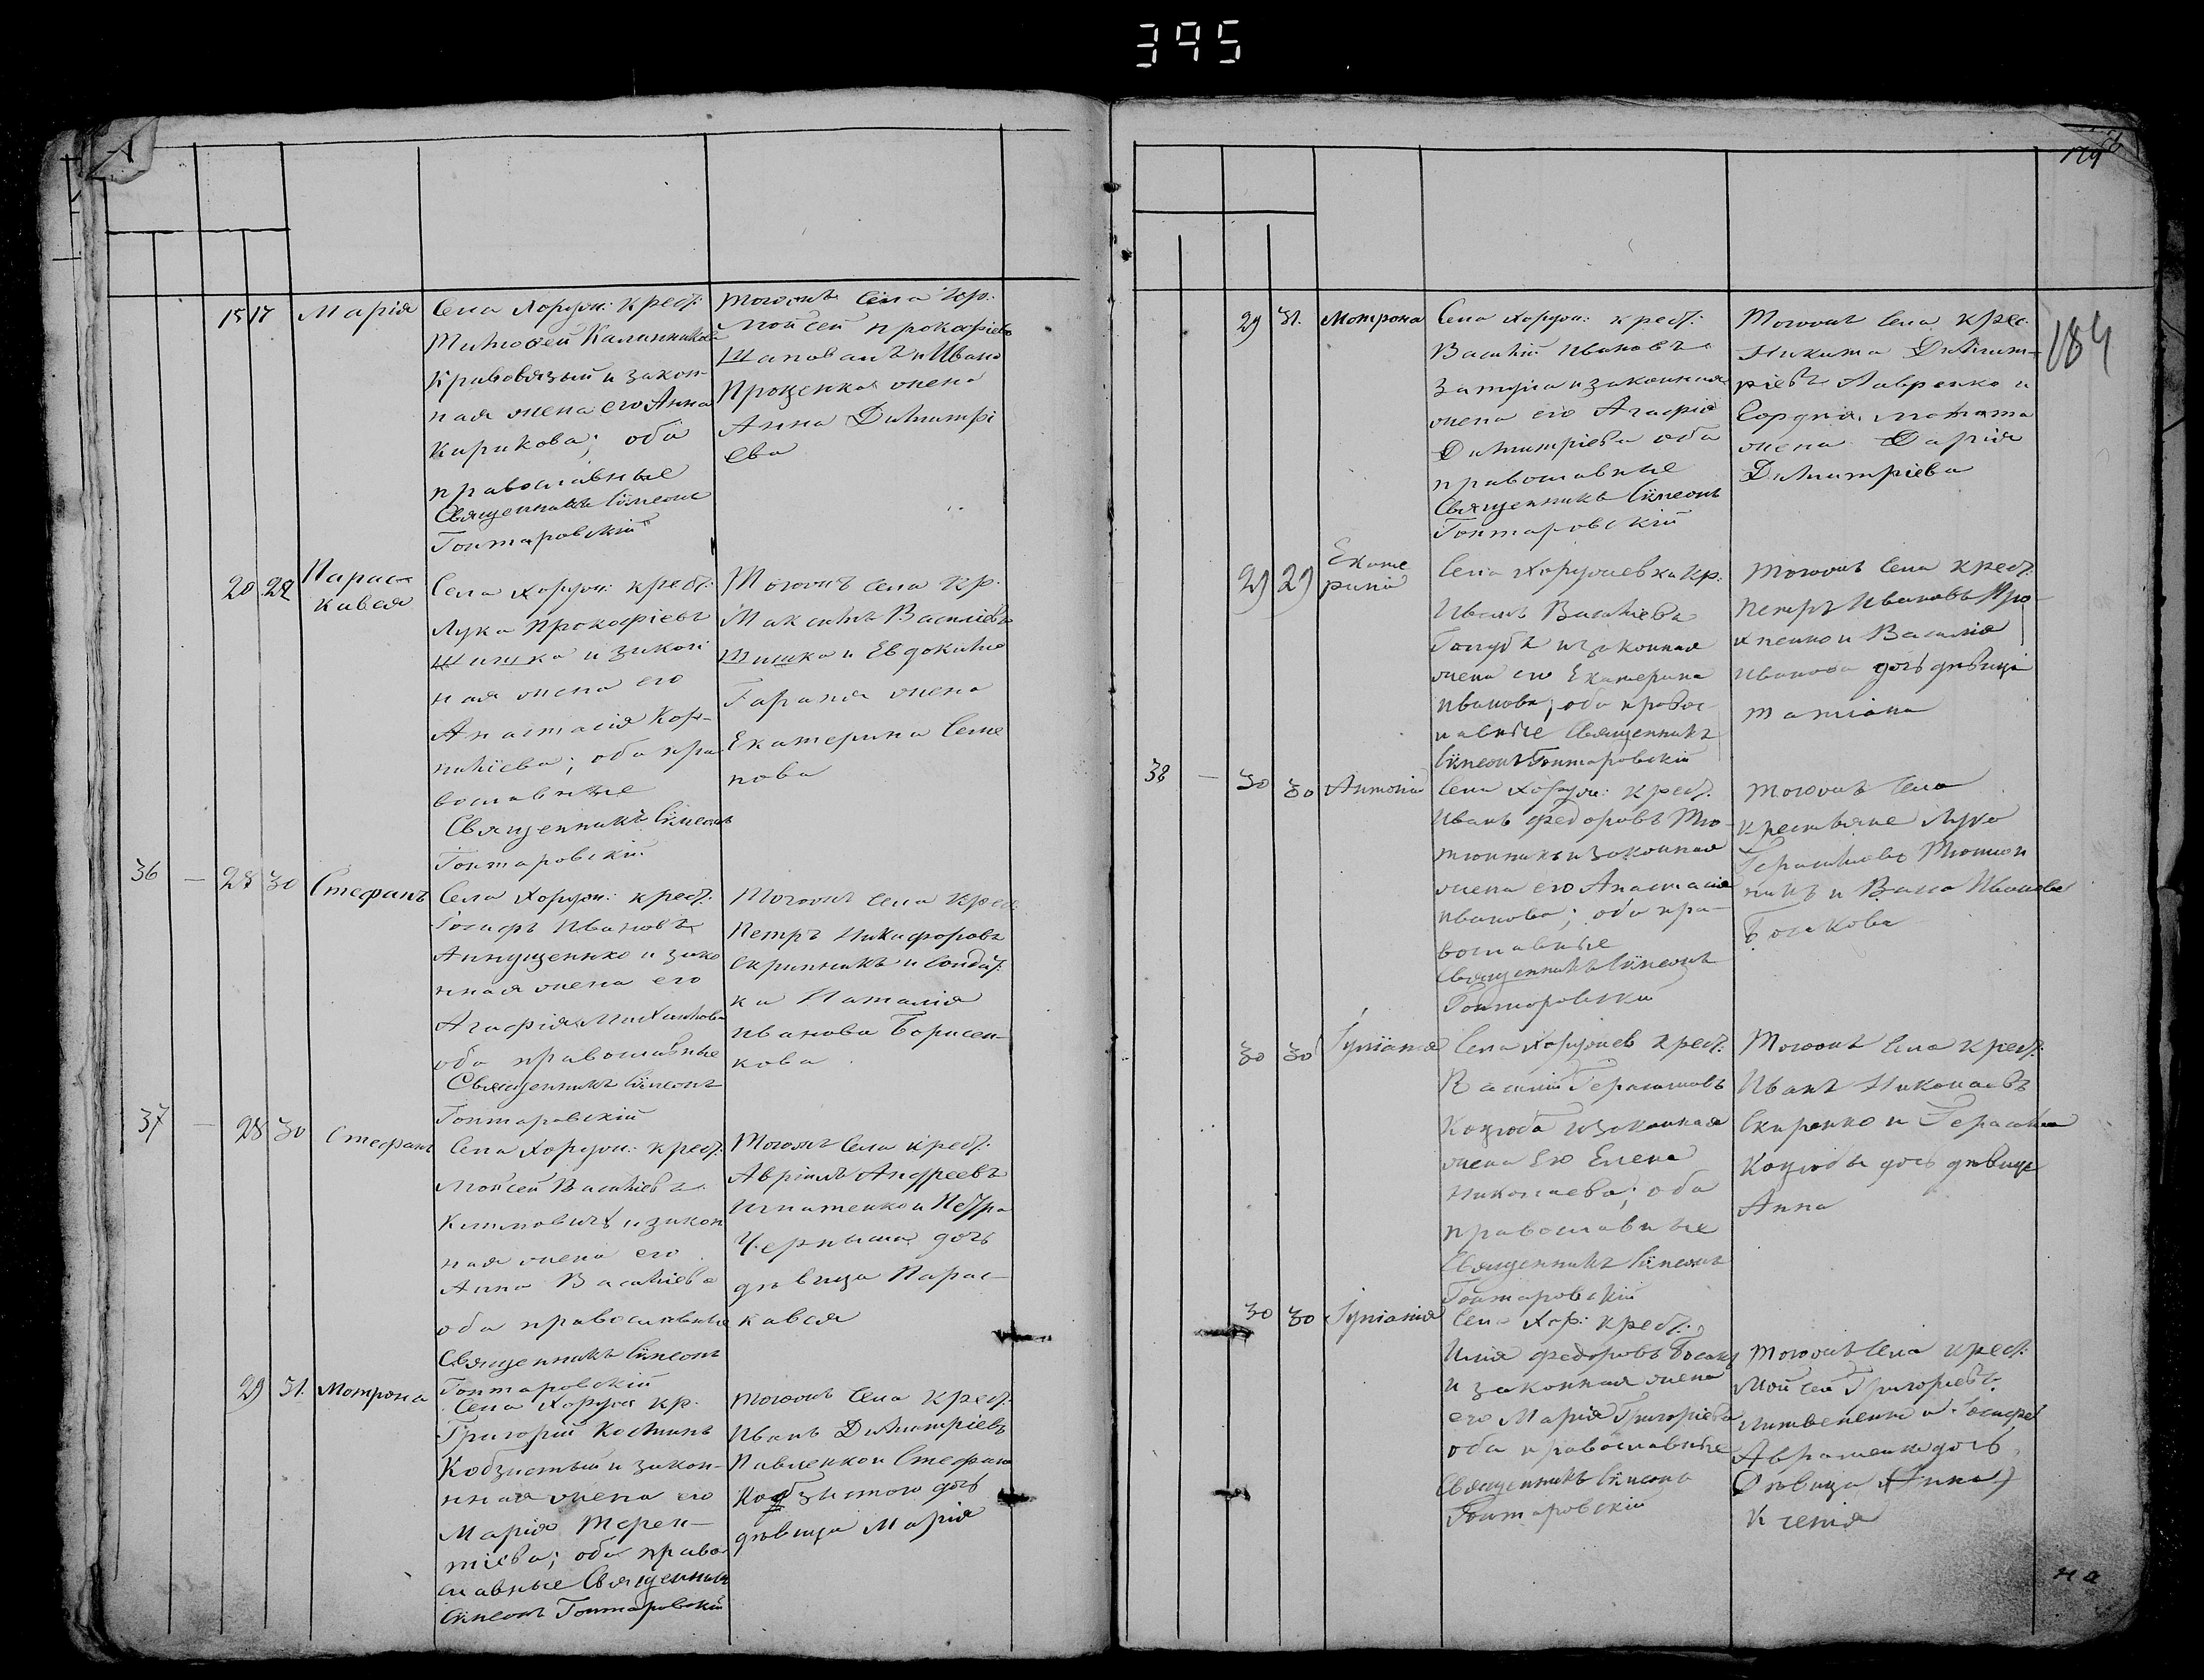 395
15 17 Марія
Села Хоружи: крест:
Тимофей Калинников
Кривовязый и закон-
ная жена его Анна
Кирикова; оба
православные
Священникъ Сѵмеонъ
Гонтаровскій
Тогожъ села кр.
Мойсей Прокофіевъ
Шаповалъ и Ивана
Проценка жена
Анна Димитрі
ева
20 22 Парас-
кавея
Села Хоружи: крест:
Лука Прокофіевъ
Шишка и закон
ная жена его
Анастасія Кор-
ниліева; оба пра
вославные
Священникъ Сѵмеонъ
Гонтаровскій
Тогожъ села кр.
Максимъ Василіевъ
Шишка и Евдокима
Гараня жена
Екатерина Семе
нова
36 — 28 30 Стефанъ
Села Хоружи: крест:
Іосифъ Ивановъ
Анущенко и зако
нная жена его
Агафія Михайлова
оба православные
Священникъ Сѵмеонъ
Гонтаровскій
Тогожъ села крест:
Петръ Никифоровъ
Скрипникъ и солдат:
ка Наталія
Иванова Борисен-
кова
37 — 28 30 Стефанъ
Села Хоружи: крест:
Мойсей Василіевъ
Климовичъ и закон
ная жена его
Анна Василіева
оба православные
Священникъ Сѵмеонъ
Гонтаровскій
Тогожъ села крест:
Авріилъ Андреевъ
Игнатенко и Петра
Черныша дочь
дѣвица Парас-
кавея
29 31. Мотрона
Села Хоружи кр.
Григорій Косминъ
Кобзистый и закон-
нная жена его
Марія Терен-
тіева; оба право
славные Священникъ
Сѵмеонъ Гонтаровскій
Тогожъ села крест:
Иванъ Димитріевъ
Павленко и Стефана
Кобзистого дочь
дѣвица Марія
179
184
29 31. Мотрона
Села Хоружи: крест:
Василій Ивановъ
и законная
жена его Агафія
Димитріева оба
православные
Священникъ Сѵмеонъ
Гонтаровскій
Тогожъ села крес:
Никита Димит-
ріевъ Лавренко и
жена Дарія
Димитріева
29 29 Екате
рина
Села Хоружевка кр.
Иванъ Василіевъ
Голубъ и законная
жена его Екатерина
Иванова; оба правос
лавные Священникъ
Сѵмеонъ Гонтаровскій
Тогожъ села крест:
Петръ Ивановъ Про-
хненко и Василія
Иванова дочь дѣвица
Татіана
38 — 30 30 Антоній
Села Хоружи: крест:
Иванъ Федоровъ Тю-
тюнникъ и законная
жена его Анастасія
Иванова; оба пра-
вославные
Священникъ Сѵмеонъ
Гонтаровскій
Тогожъ села
крестьяне Лука
Герасимовъ Тютюн
никъ и Васса Иванова
Волкова
30 30 Іуліанія
Села Хоружев крест:
Василій Герасимовъ
Коцюба и законная
жена его Елена
Николаева; оба
православные
Священникъ Сѵмеонъ
Гонтаровскій
Тогожъ села крест:
Иванъ Николаевъ
Скиренко и Герасима
Коцюбы дочь дѣвица
Анна
30 30 Іуліанія
Села Хор: крест:
Илія Федоровъ
и законная жена
его Марія Григоріева
оба православные
Священникъ Сѵмеонъ
Гонтаровскій
Тогожъ села крест:
Мойсей Григоріевъ
Литвененко и Іосифа
Авраменко дочь
дѣвица (Анна)
Ксенія
на